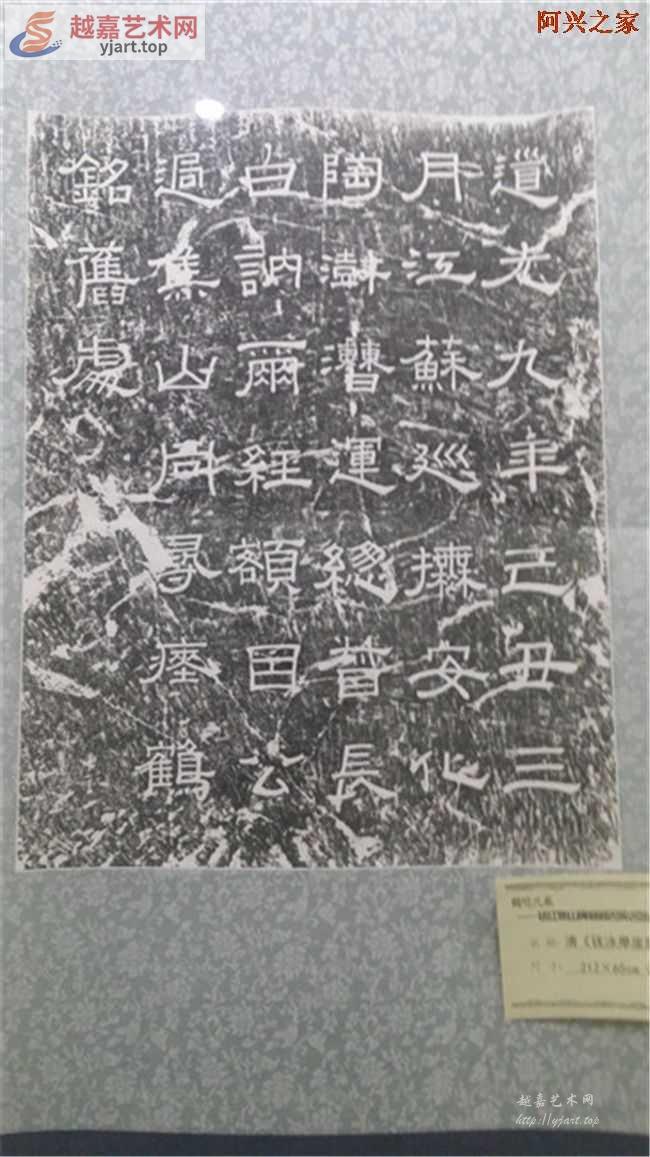 越嘉艺术网
yjart.top
阿兴之家
道光九年己丑三
月江蘇巡撫安化
陶澍漕運總督長
白訥爾經額因公
過焦山同尋瘞鶴
銘舊處
212×60cm
越嘉艺术网
http://yjart.top